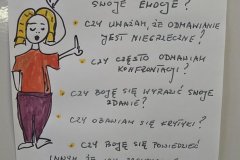 SWOJE EMOCJE?
CZY UWAŻAM, ŻE ODMAWIANIE
JEST NIEGRZECZNE?
CZY CZĘSTO ODMAWIAM
KONFRONTACJI?
CZY BOJĘ SIĘ WYRAZIĆ SWOJE
ZDANIE?
CZY OBAWIAM SIĘ KRYTYKI?
CZY BOJĘ SIĘ POWIEDZIEĆ
INNYM, ŻE